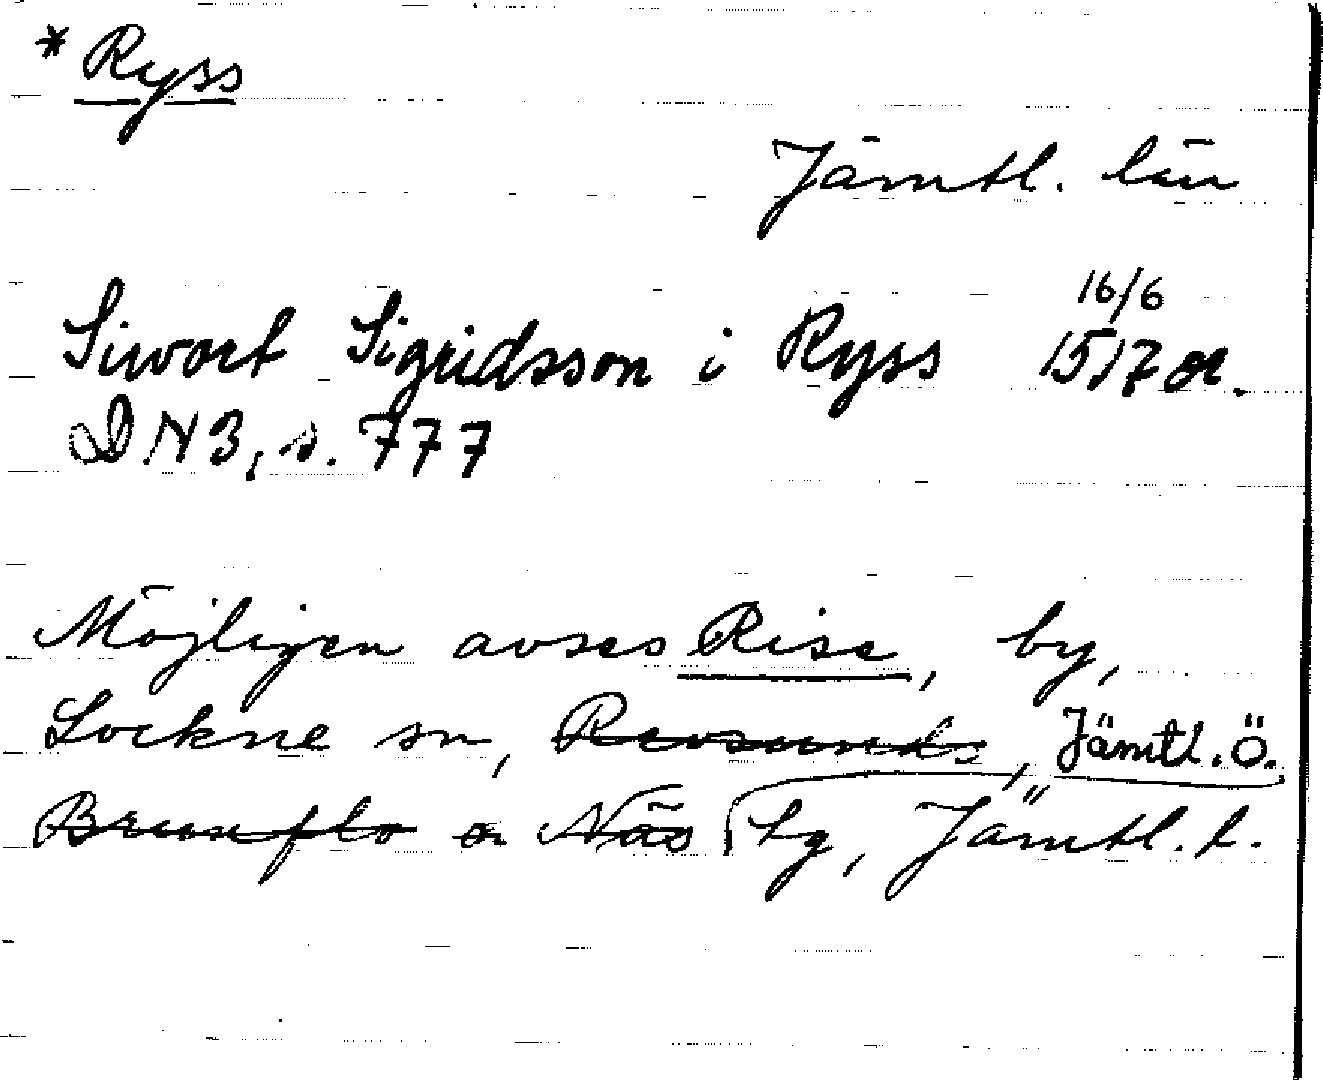 * Ryss
Jämtl. län
16/6
Siwort Sigridsson i Ryss 1517 or.
DN 3, s. 777
Möjligen avses Rise, by,
Lockne sn, Revsunds, Jämtl. Ö.
Brunflo o Näs tg, Jämtl. l.